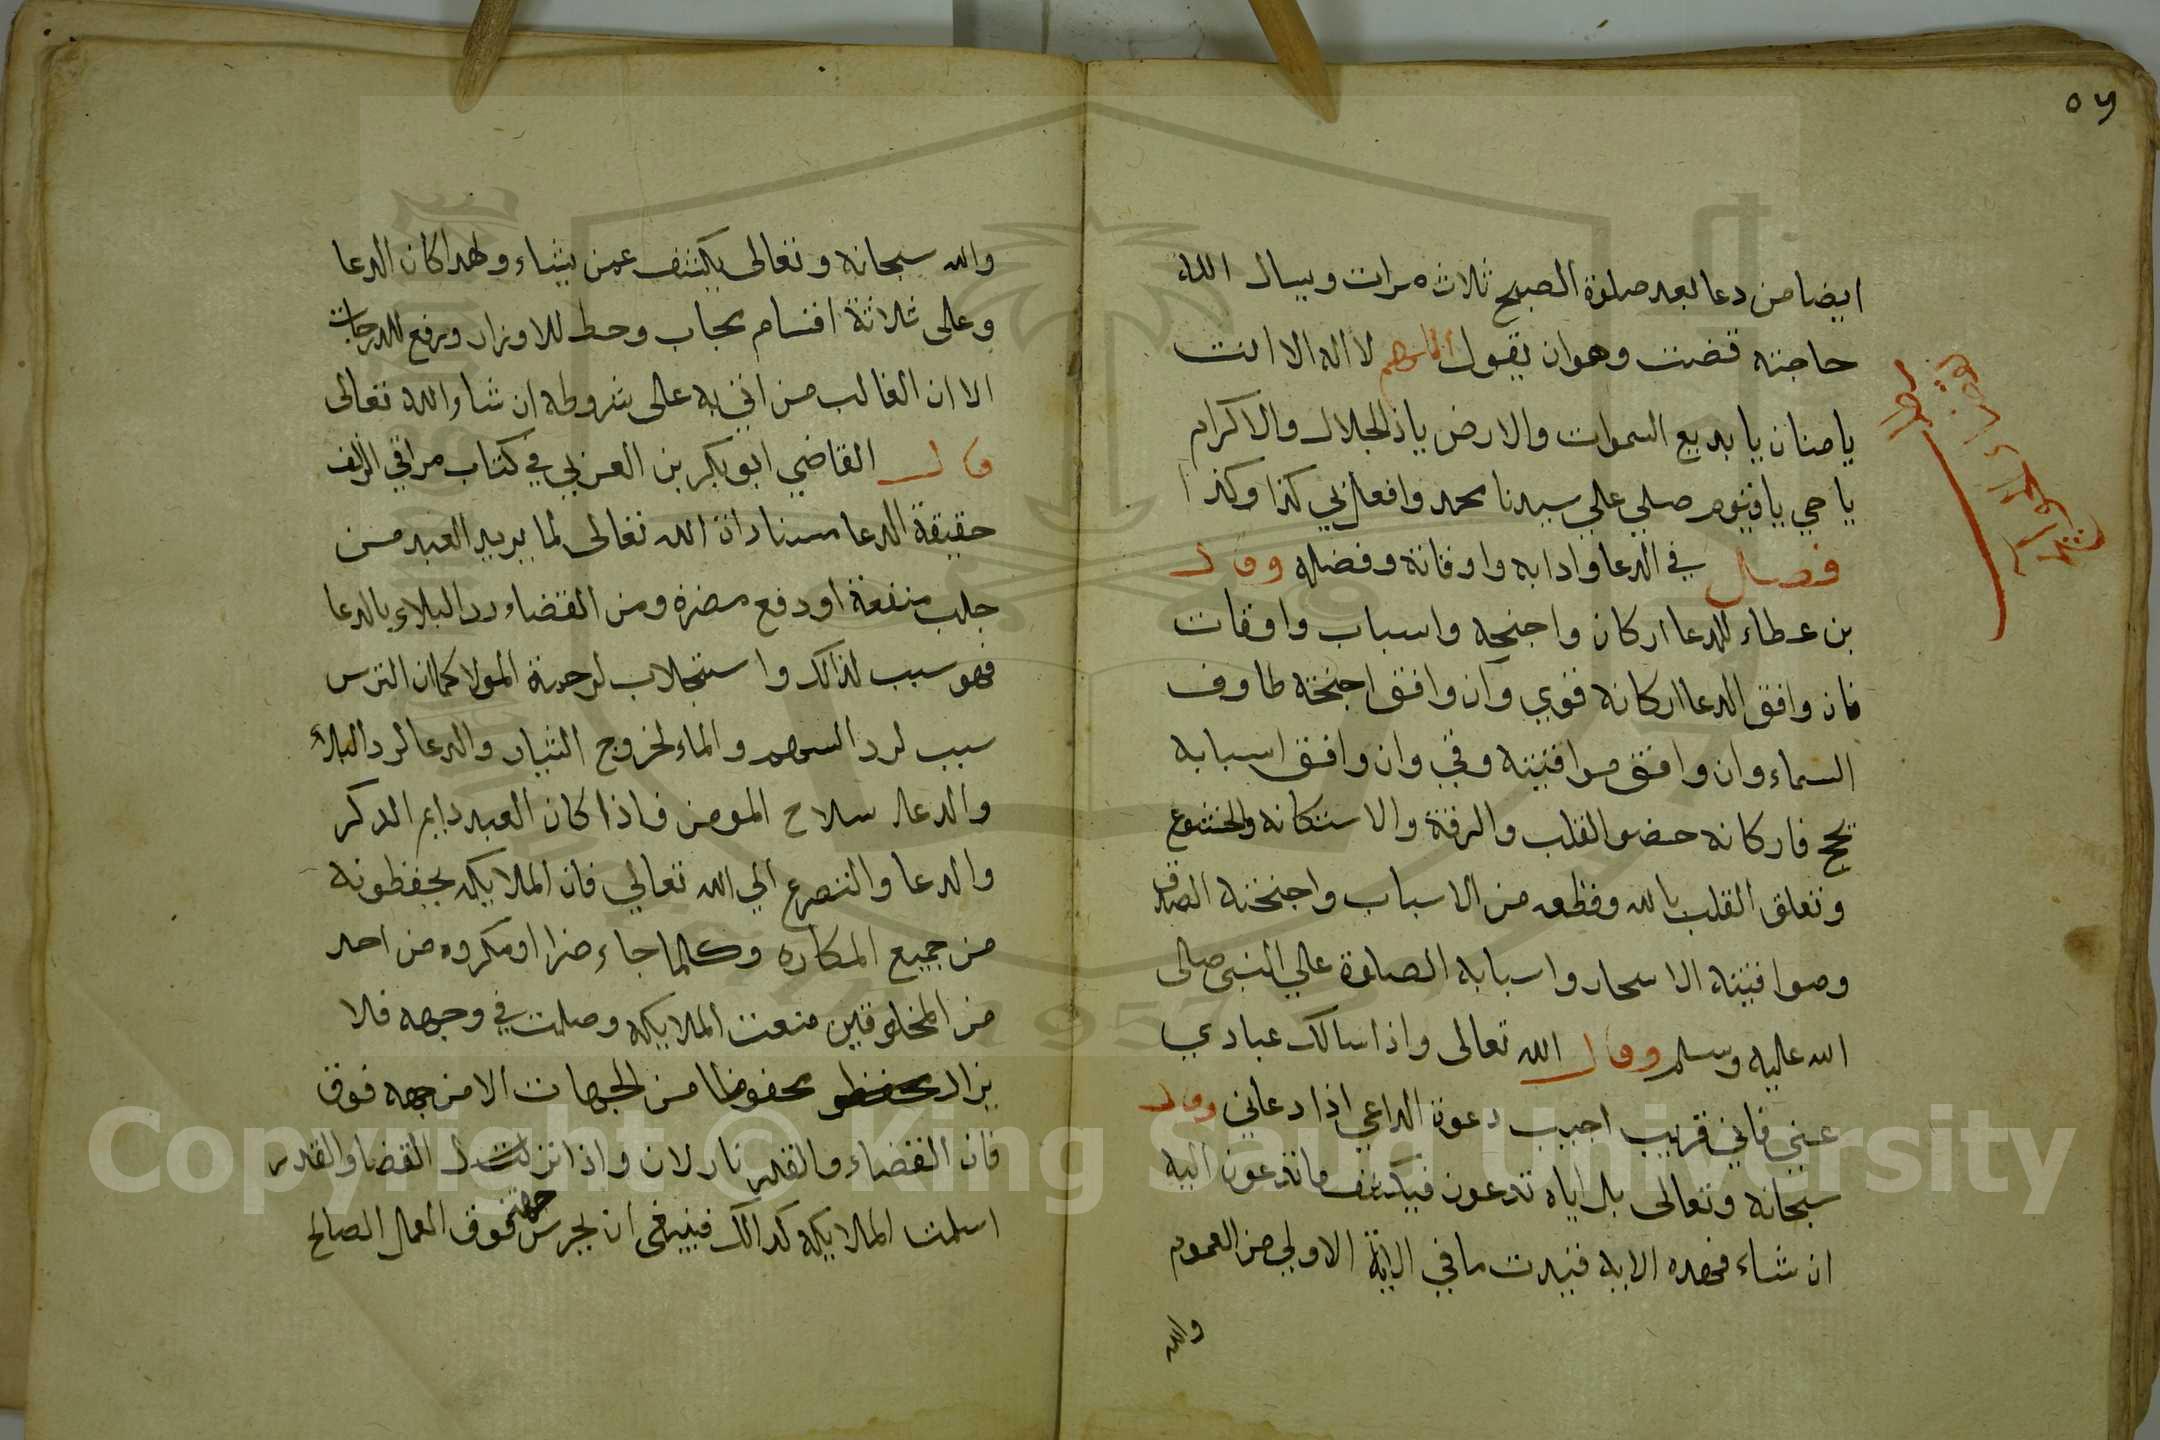 ٥٦
ايضا من دعا بعد صلوة الصبح ثلاث مرات ويسال الله
حاجته قضت وهو ان يقول اللهم لا اله الا انت
يا منان يا بديع السموات والارض ياذا الجلال والاكرام
يا حي يا قيوم صلي علي سيدنا محمد وافعل بي كذا وكذا
فصل في الدعا وادابه واوقاته وفضله وقال
بن عطاء للدعا اركان واجنحه واسباب واوقات
فان وافق الدعا اركانه قوي وان وافق اجنحته طا وف
السماء وان وافق مواقيته وفي وان وافق اسبابه
نجح فاركانه حضو القلب والرقة والاستكانه والخشوع
وتعلق القلب بالله وقطعه من الاسباب واجنحته الصدق
ومواقيته الاسحار واسبابه الصلوة علي النبي صلى
الله عليه وسلم وقال الله تعالى واذا سالك عبادي
عني فاني قريب اجيب دعوة الداعي اذا دعاني وقال
سبحانه وتعالى بل اياه تدعون فيكشف ما تدعون اليه
ان شاء فهده الايه قيدت ما في الاية الاولي من العموم
والله
والله سبحانه وتعالى يكشف عمن يشاء ولهدا كان الدعا
وعلى ثلاثة اقسام يجاب وحط للاوزار ورفع للدرجات
الا ان الغالب من اتي به على شروطه ان شاء الله تعالى
قال القاضي ابو بكر بن العربي في كتاب مراقي الزلف
حقيقة الدعا مناداة الله تعالى لما يريد العبد من
جلب منفعة او دفع مضرة ومن القضاء رد البلاء بالدعا
فهو سبب لذالك واستجلاب لرحمة المولا كما ان الترس
سبب لرد السهم والماء لخروج النبات والدعا لرد البلاء
والدعاء سلاح المومن فاذا كان العبد دايم الدكر
والدعا والتضرع الي الله تعالي فان الملايكه يحفظونه
من جميع المكاره وكلما جاء ضرا او مكروه من احد
من المخلوقين منعت الملايكه وصلت في وجهه فلا
يزال محفوظا من الجهات الا من جهه فوق
فان القضاء والقدر نازلان واذا نزل القضا والقدر
اسلمت الملايكه كدالك فينبغي ان يحرس جهة فوق العمل الصالح
Copyright © King Saud University
1957